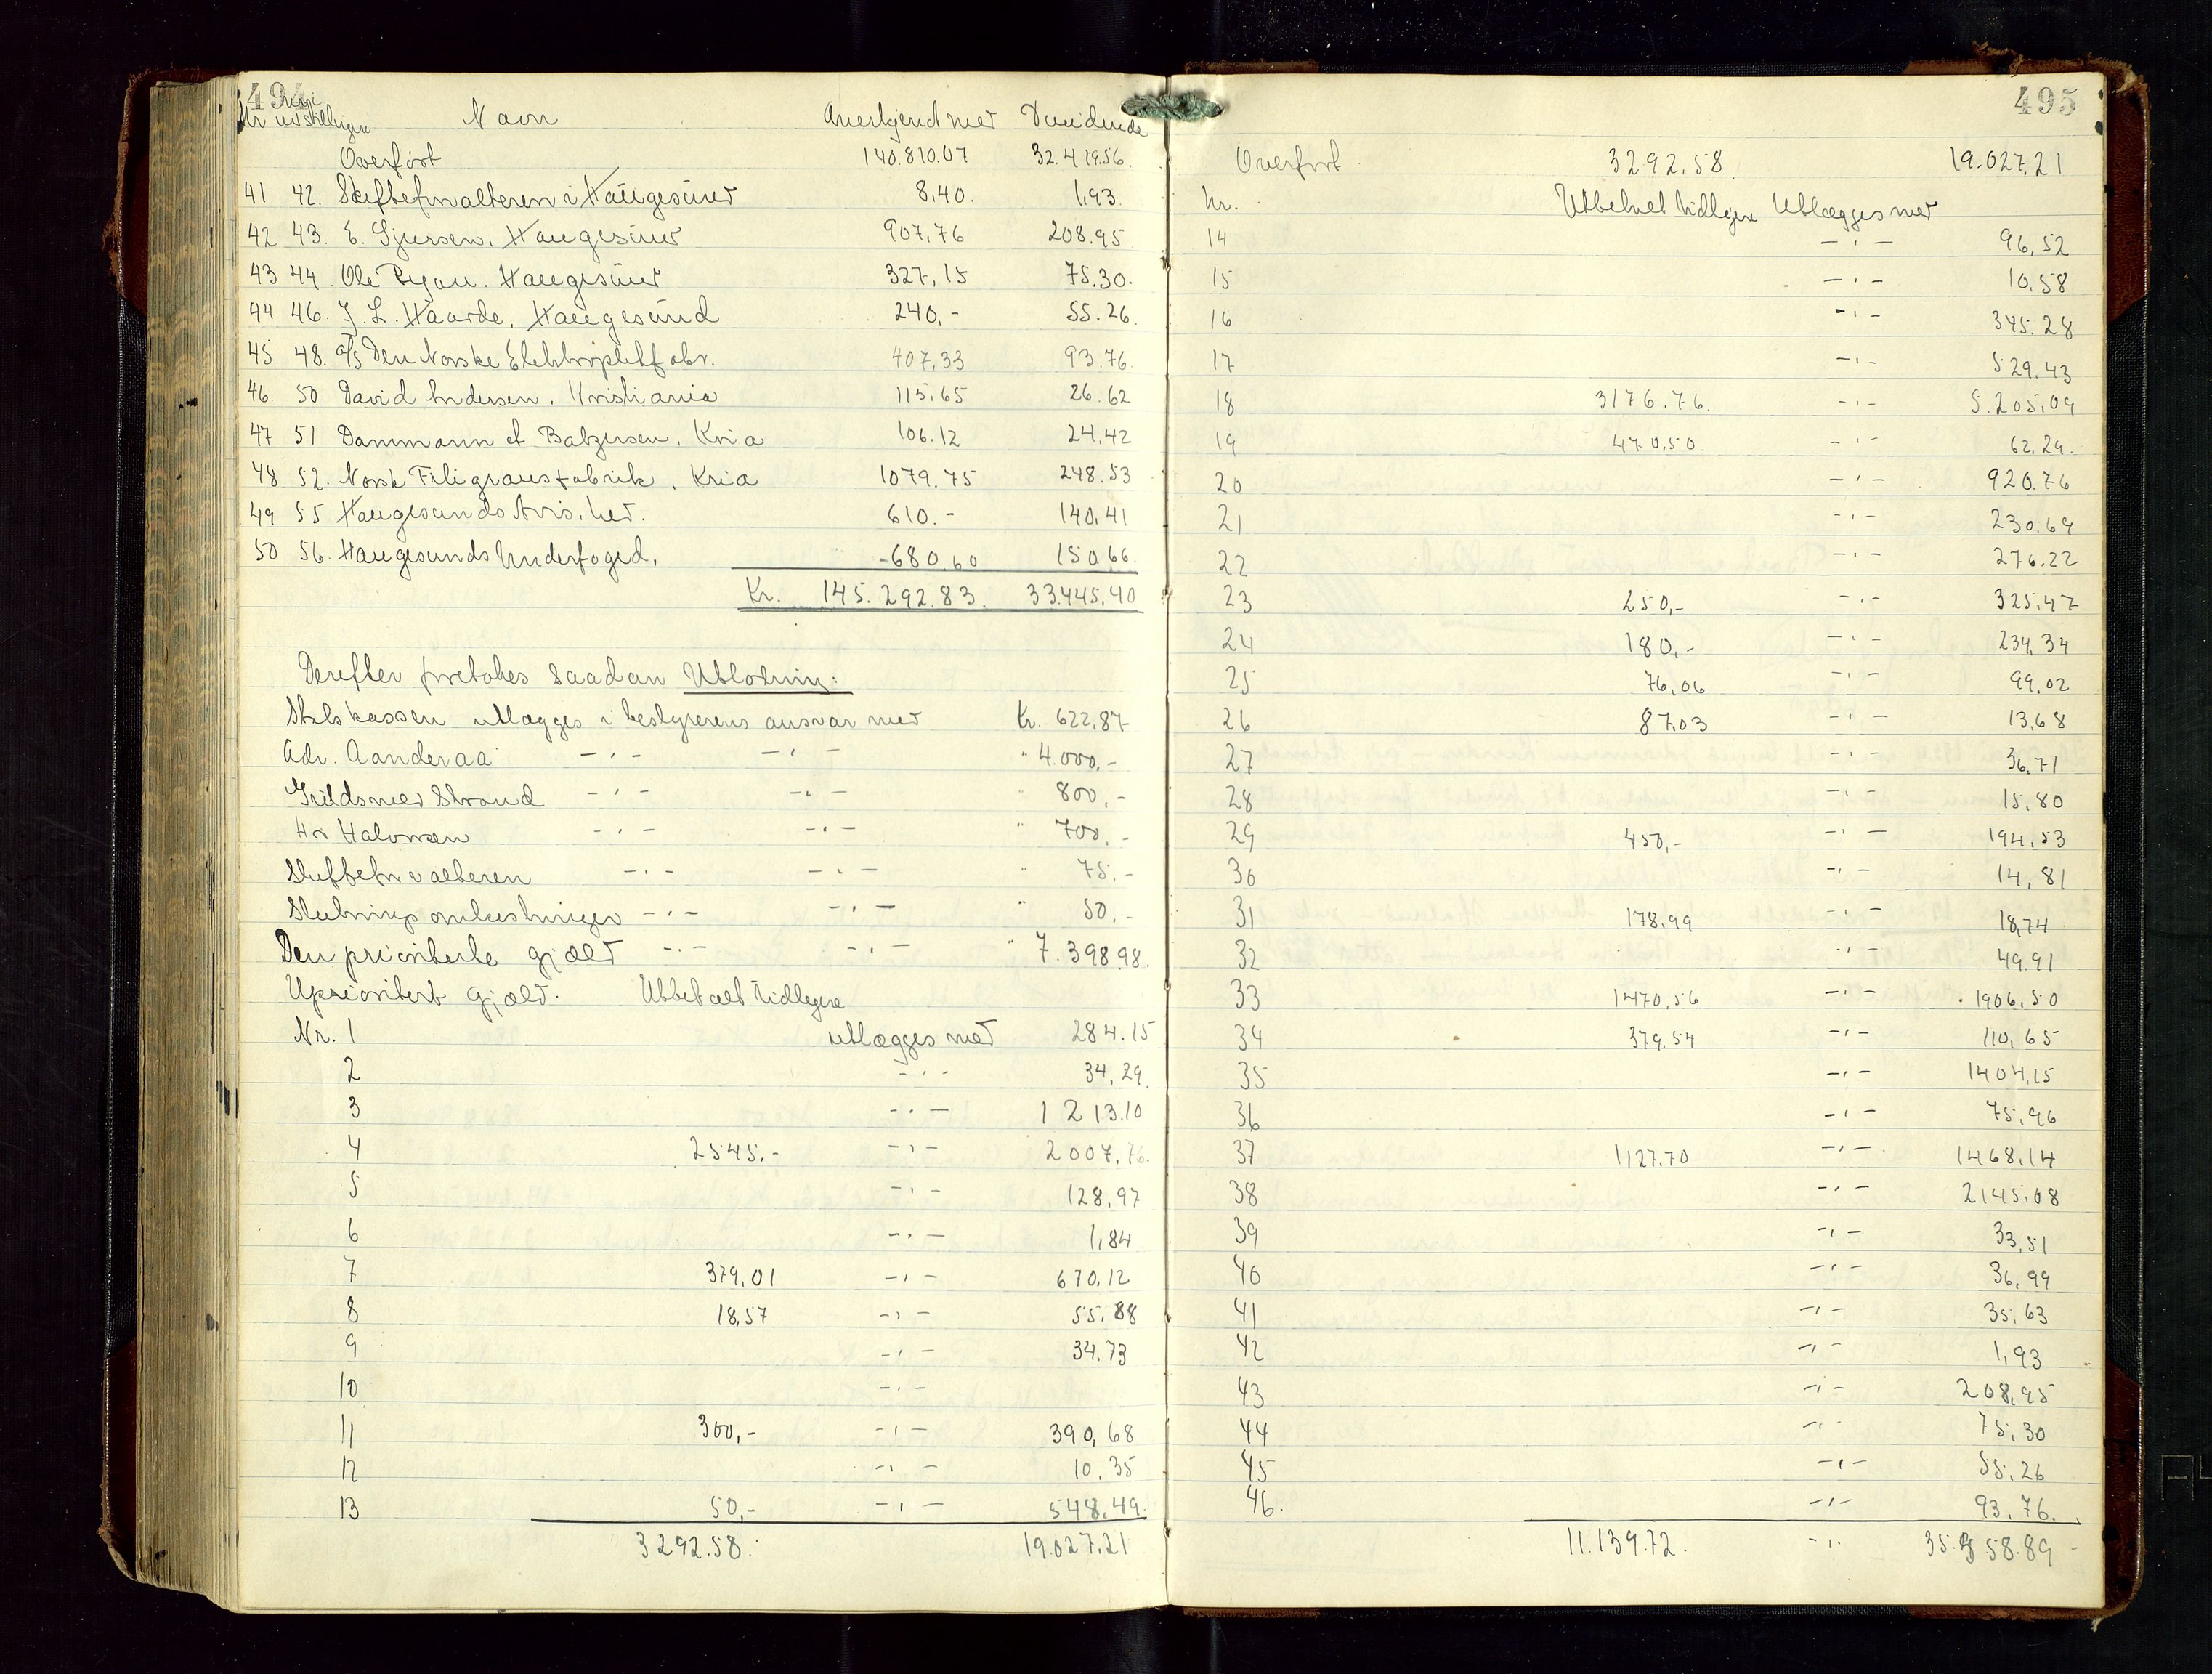 494
Nr Navn Anerkjend med Dividende
Overført 140.810.07 32.419.56.
41 42. Skifteforvalteren i Haugesund 8,40. 1,93.
42 43. E. Sjursen, Haugesund 907,76 208.95.
43 44. Ole Haugesund 327,15 75.30.
44 46. J. L. Haarde, Haugesund 240,- 55.26.
45. 48. A/S Den Norske Elektropletfabr. 407,33 93.76.
46. 50 David Andersen, Kristiania 115,65 26.62
47 51 Dammann et Balzersen, Kria 106.12 24,42
48 52. Norsk Filigransfabrik, Kria 1079.75 248.53
49 55 Haugesunds Avis, her. 610.- 140,41
50 56. Haugesunds Underfoged, 680,60 150,66.
Kr. 145.292.83. 33.445,40
Derefter foretokes saadan Utlodning:
Skifskassen utlægges i bestyrerens ansvar med Kr. 622,87
Adv. Aanderaa -"- -"- " 4.000,-
Guldsmed Strand -"- -"- " 800,-
Hr Halvorsen -"- -"- " 700,-
Skifteforvalteren -"- -"- " 75.-
Slutningsomkostninger -"- -"- " 50.-
Den prioriterte gjæld -"- -"- " 7.398.98.
Uprioritert gjæld. Utbetalt tidligere
Nr. 1 utlægges med 284.15
2 -"- 34,29.
3 -"- 1213.10
4 2545.- -"- 2007,76.
5 -"- 128,97
6 -"- 1,84
7 379,01 -"- 670,12
8 18,57 -"- 55,88
9 -"- 34.73
10 -"-
11 300,- -"- 390,68
12 -"- 10,35
13 50,- -"- 548,49.
3292.58. 19.027.21
495
Overført 3292,58. 19.027,21
Nr. Utbetalt tidligere Utlægges med
14 -"- 96,52
15 -"- 10,58
16 -"- 345.28
17 -"- 529.43
18 3176.76. -"- 5.205,09
19 470,50. -"- 62,29.
20 -"- 920.76
21 -"- 230,69
22 -"- 276.22
23 250,- -"- 325,47
24 180,- -"- 234,34
25 76,06 -"- 99,02
26 87,03 -"- 13,68
27 -"- 36,71
28 -"- 15,80
29 450,- -"- 194,53
30 -"- 14,81
31 178,99 -"- 18,74
32 -"- 49.91
33 1470,56 -"- 1906,50
34 379,54 -"- 110,65
35 -"- 1404,15
36 -"- 75,96
37 1,127.70 -"- 1468,14
38 -"- 2145,08
39 -"- 33,51
40 -"- 36,99
41 -"- 35,63
42 -"- 1,93
43 -"- 208,95
44 -"- 75,30
45 -"- 55,26
46. -"- 93,76.
11.139.72. -"- 35.358.89